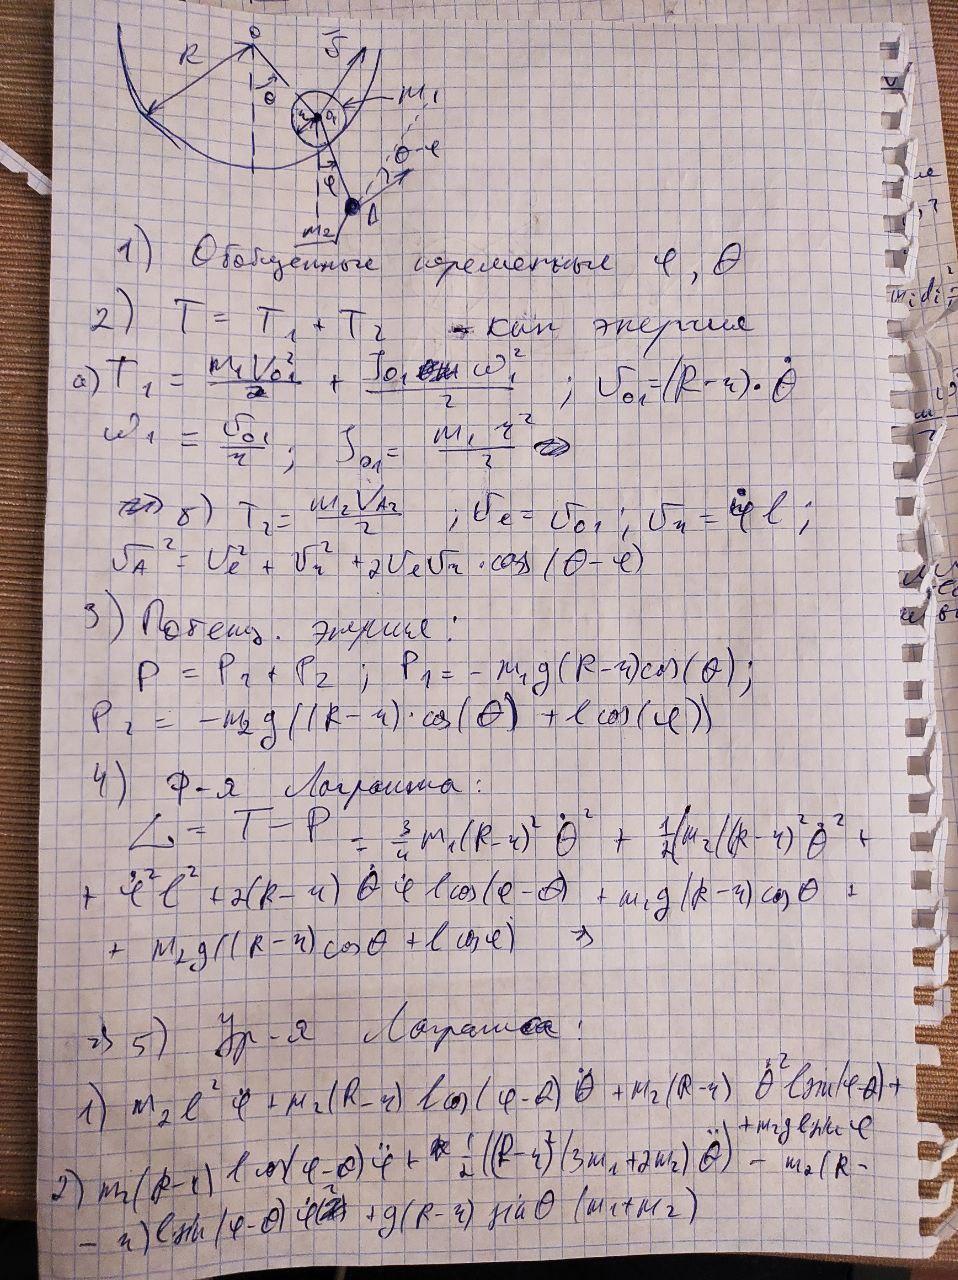 O
R
v̄
θ
m₁
r
O₁
θ-φ
φ
A
m₂
1) Обобщенные переменные φ, θ
2) T = T₁ + T₂ - кин энергия
а) T₁ = m₁V₀₁²/2 + J₀₁ ω₁²/2 ; v₀₁=(R-r)·θ̇
ω₁ = v₀₁/r ; J₀₁= m₁ r²/2
б) T₂= m₂V_A₂/2 ; v_e = v₀₁ ; v_r = φ̇ l ;
v_A² = v_e² + v_r² + 2v_e v_r · cos (θ-φ)
3) Потенц. энергия:
P = P₁ + P₂ ; P₁ = - m₁g(R-r)cos(θ);
P₂ = -m₂g((R-r)·cos(θ) + l cos(φ))
4) Ф-я Лагранжа:
L = T - P = 3/4 m₁(R-r)² θ̇² + 1/2(m₂((R-r)² θ̇² +
+ φ̇² l² + 2(R-r) θ̇ φ̇ l cos(φ-θ) + m₁g(R-r)cosθ +
+ m₂g((R-r)cosθ + l cosφ) ⇒
⇒ 5) Ур-я Лагранжа:
1) m₂ l² φ̈ + m₂(R-r) l cos(φ-θ) θ̈ + m₂(R-r) θ̇² l sin(φ-θ)+
+ m₂gl sin φ
2) m₂(R-r) l cos(φ-θ) φ̈ + 1/2((R-r)²(3m₁+2m₂) θ̈) - m₂(R-
- r) l sin(φ-θ) φ̇² + g(R-r) sinθ (m₁+m₂)